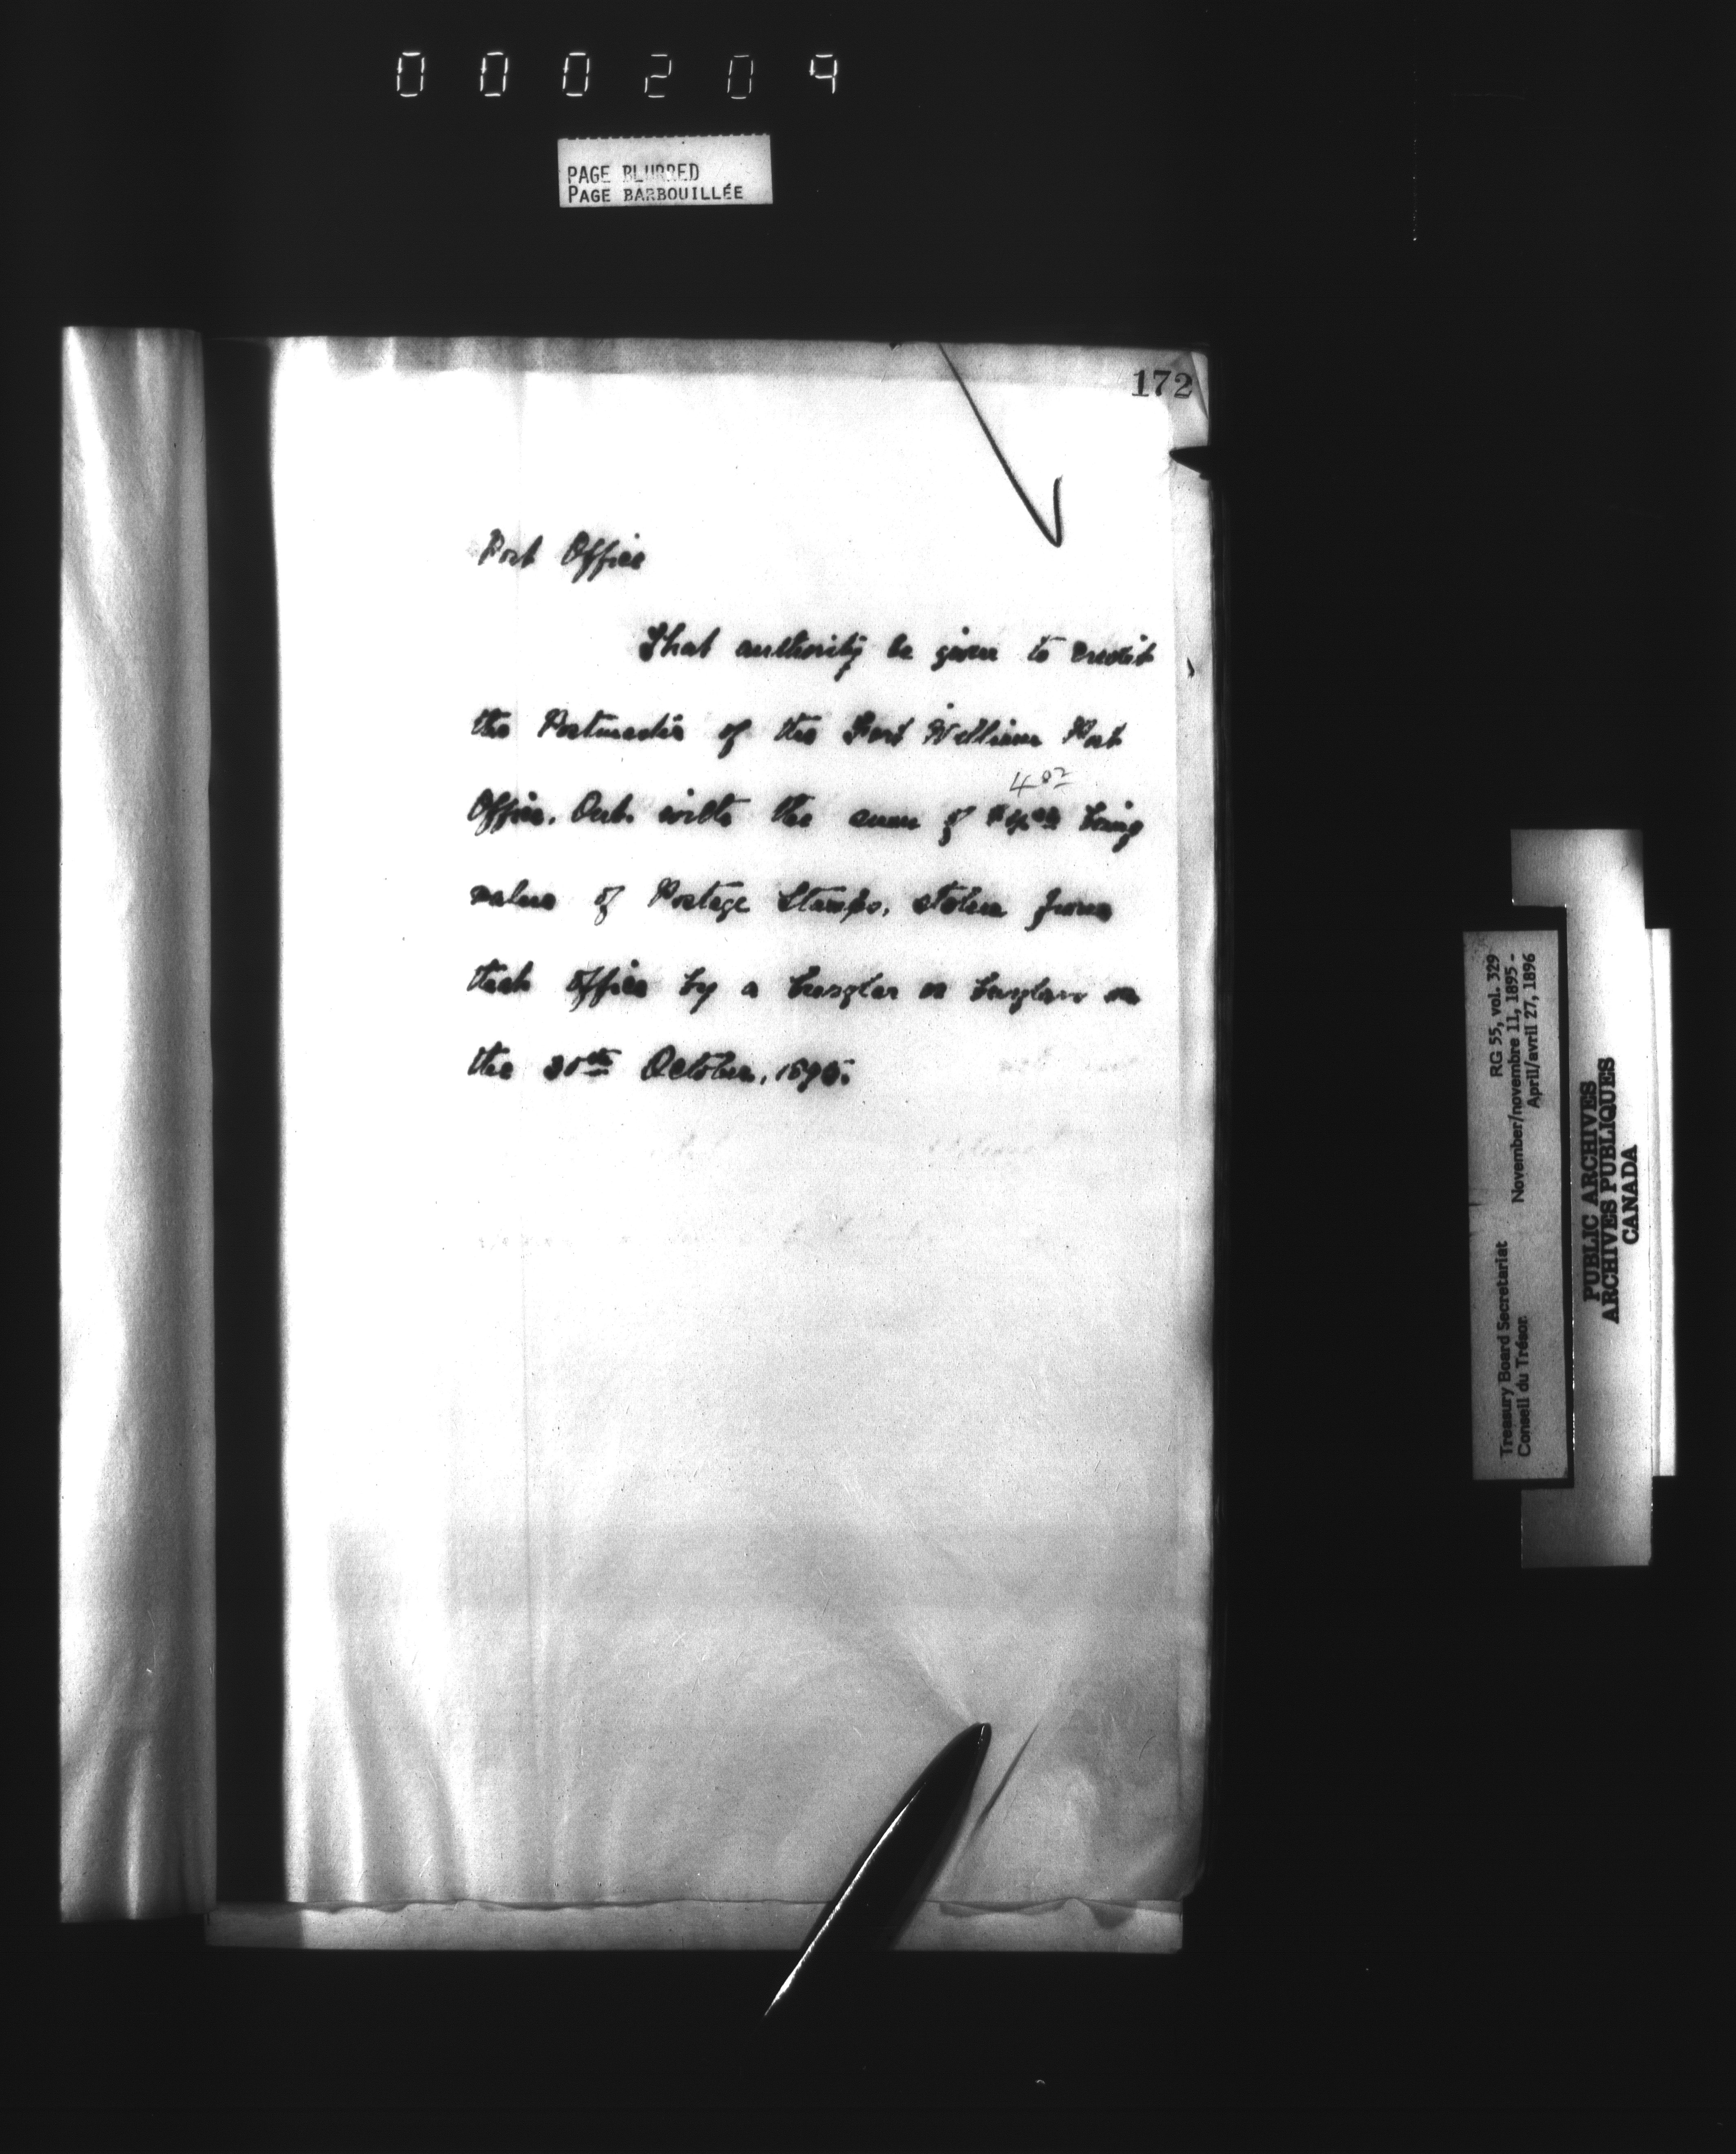 000209
PAGE BLURRED
PAGE BARBOUILLÉE
172
Post Office
That authority be given to credit
the Postmaster of the Fort William Post
4 02
Office, Ont. with the sum of being
value of Postage Stamps, stolen from
that office by a burglar or burglars on
the October, 1895.
RG 55, vol. 329
Treasury Board Secretariat November/novembre 11, 1895 -
Conseil du Trésor April/avril 27, 1896
PUBLIC ARCHIVES
ARCHIVES PUBLIQUES
CANADA